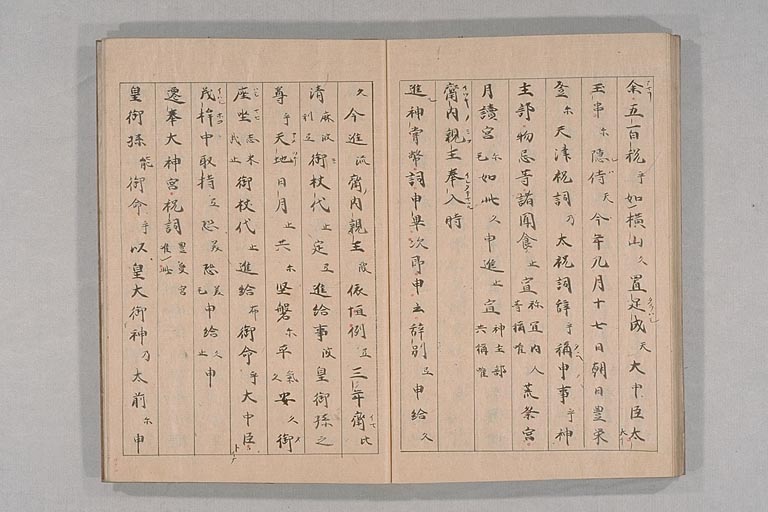 余五百税乎如横山久置足成天大中臣太
玉串尓隠侍天今年九月十七日朝日豊栄
登尓天津祝詞乃太祝詞辞乎称申事乎神
主部物忌等諸聞食止宣祢宜内人等称唯荒祭宮
月讀宮尓毛如此久申進止宣神主部共称唯
齋内親王奉入時
進神甞幣詞申畢次即申云辞別弖申給久
久今進流齋内親王波依恒例弖三年齋比
清麻波利弖御杖代止定弖進給事波皇御孫之
尊乎天地日月止共尓堅磐尓平氣久安久御
座坐志米武止御杖代止進給布御命乎大中臣
茂桙中取持弖恐美恐美毛申給久止申
遷奉大神宮祝詞豊受宮准此
皇御孫能御命乎以皇大御神乃太前尓申